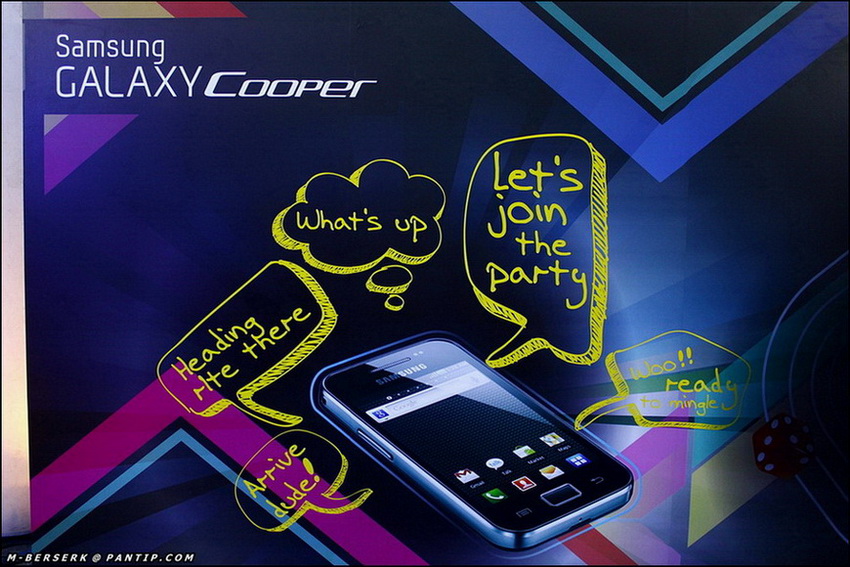 Samsung
GALAXY Cooper
Let's
join
the
party
What's up
Heading
rite there
SAMSUNG
Woo!!
ready
to mingle
Gmail
Talk
Market
Maps
Arrive
dude!
M-BERSERK @ PANTIP.COM